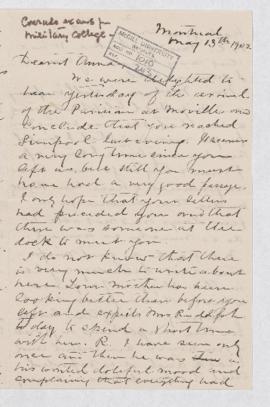 Corrects exams for
Military College
Montreal
May 13th 1902
McGILL UNIVERSITY
1010
Dearest Anna
We were delighted to
hear yesterday of the arrival
of the Parisian at Moville and
conclude that you reached
Liverpool last evening. It seems
a very long time since you
left us, but still you must
have had a very good passage.
I only hope that your letters
had preceded you and that
there was someone at the
dock to meet you.
I do not know that there
is very much to write about
here. Your mother has been
looking better than before you
left and expects Mrs
today to spend a short time
with her. R. I have seen only
once and then he was in
his wonted doleful mood and
complaining that everything had